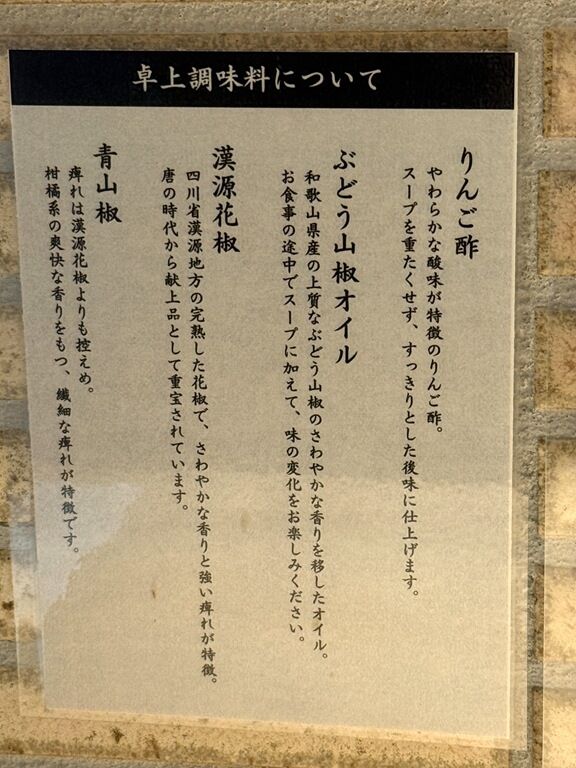 卓上調味料について
りんご酢
やわらかな酸味が特徴のりんご酢。
スープを重たくせず、すっきりとした後味に仕上げます。
ぶどう山椒オイル
和歌山県産の上質なぶどう山椒のさわやかな香りを移したオイル。
お食事の途中でスープに加えて、味の変化をお楽しみください。
漢源花椒
四川省漢源地方の完熟した花椒で、さわやかな香りと強い痺れが特徴。
唐の時代から献上品として重宝されています。
青山椒
痺れは漢源花椒よりも控えめ。
柑橘系の爽快な香りをもつ、繊細な痺れが特徴です。